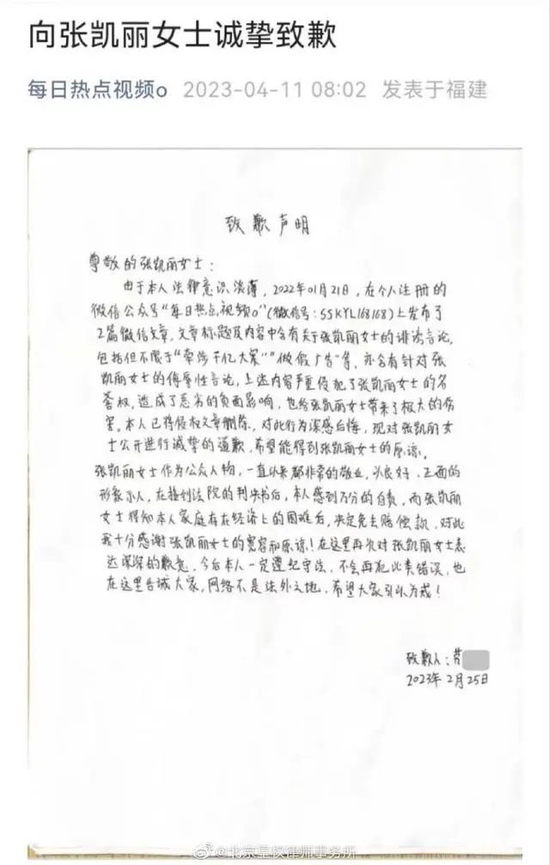 向张凯丽女士诚挚致歉
每日热点视频o 2023-04-11 08:02 发表于福建
致歉声明
尊敬的张凯丽女士:
由于本人法律意识淡薄,2022年01月21日,在个人注册的
微信公众号“每日热点视频o”(微信号:SSKYL168168)上发布了
2篇微信文章,文章标题及内容中含有关于张凯丽女士的诽谤言论,
包括但不限于“牵涉千亿大案”“做假广告”等,亦含有针对张
凯丽女士的侮辱性言论,上述内容严重侵犯了张凯丽女士的名
誉权,造成了恶劣的负面影响,也给张凯丽女士带来了极大的伤
害。本人已将侵权文章删除,对此行为深感后悔,现对张凯丽女
士公开进行诚挚的道歉,希望能得到张凯丽女士的原谅。
张凯丽女士作为公众人物,一直以来都非常的敬业,以良好、正面的
形象示人,在接到法院的判决书后,本人感到万分的自责,而张凯丽
女士得知本人家庭存在经济上的困难后,决定免去赔偿款,对此
我十分感谢张凯丽女士的宽容和原谅!在这里再次对张凯丽女士表
达深深的歉意,今后本人一定遵纪守法,不会再犯此类错误,也
在这里告诫大家,网络不是法外之地,希望大家引以为戒!
致歉人:
2023年2月25日
@北京星权律师事务所